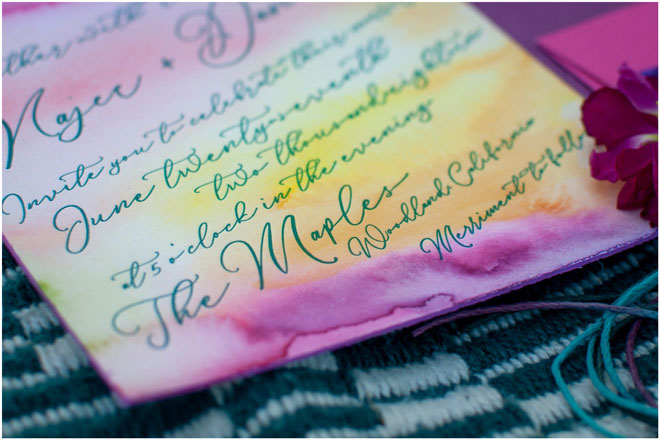 with
Najee +
Invite you to celebrate their
June twenty-seventh
two thousand eighteen
at 5 o'clock in the evening
The Maples
Woodland, California
Merriment to follo